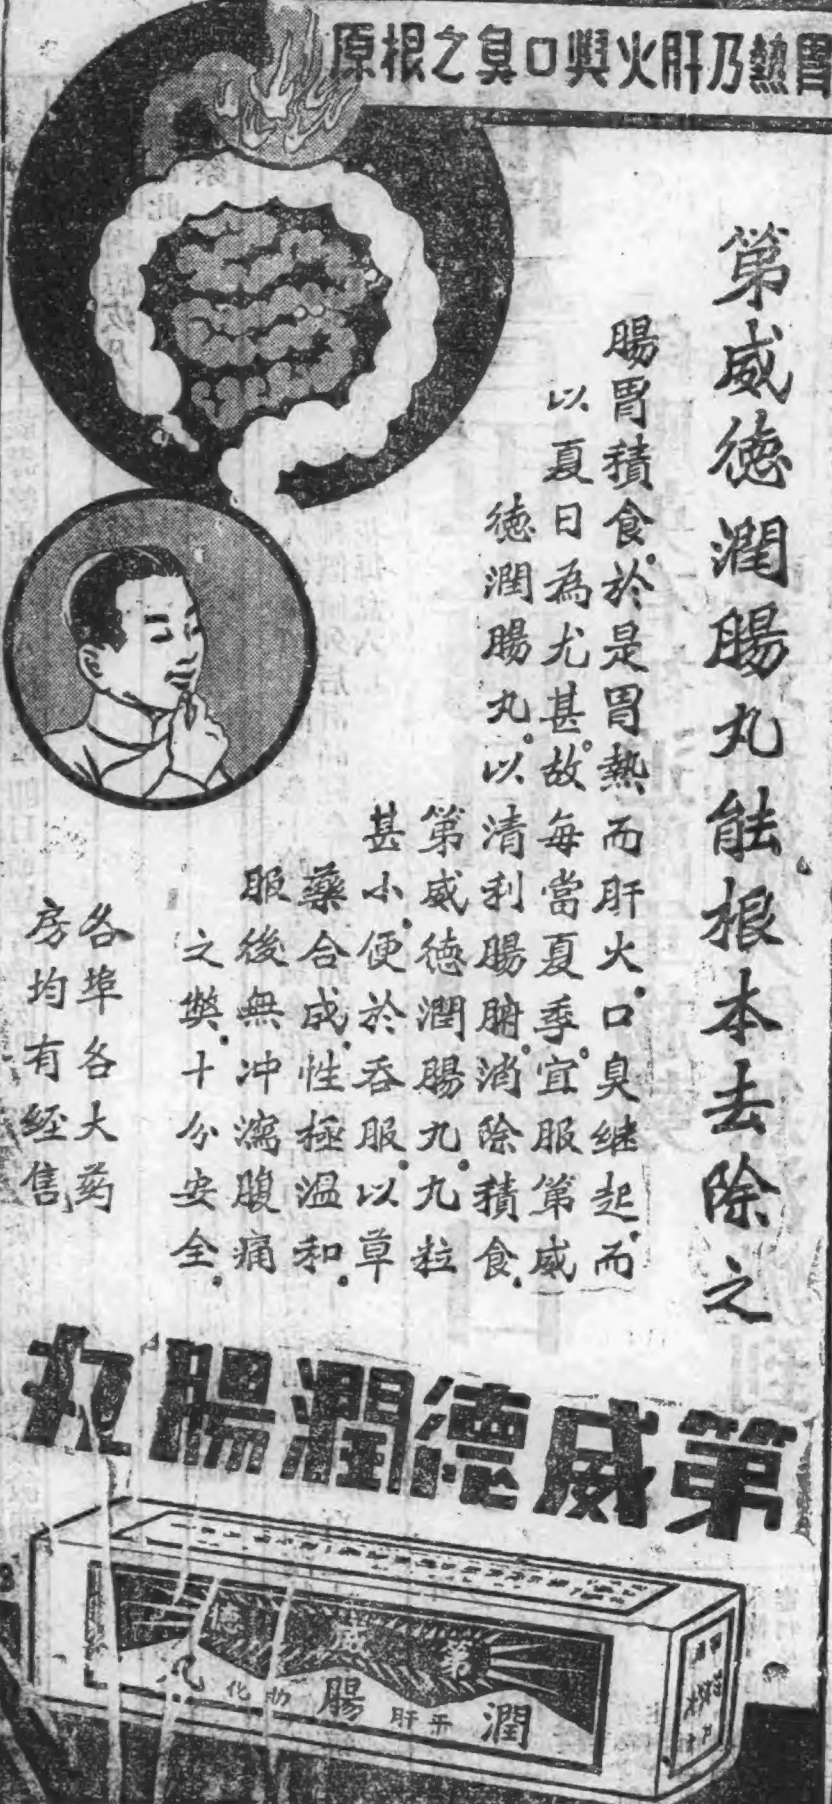 胃熱乃肝火與口臭之根原
第威德潤腸丸能根本去除之
腸胃積食。於是胃熱而肝火。口臭继起。而
以夏日為尤甚。故每當夏季。宜服第威
德潤腸丸。以清利腸腑。消除積食。
第威德潤腸丸。丸粒
甚小。便於吞服。以草
藥合成。性極溫和。
服後無冲瀉腹痛
之弊。十分安全。
各埠各大药
房均有經售
第威德潤腸丸
第威德
潤腸丸
平肝
助化